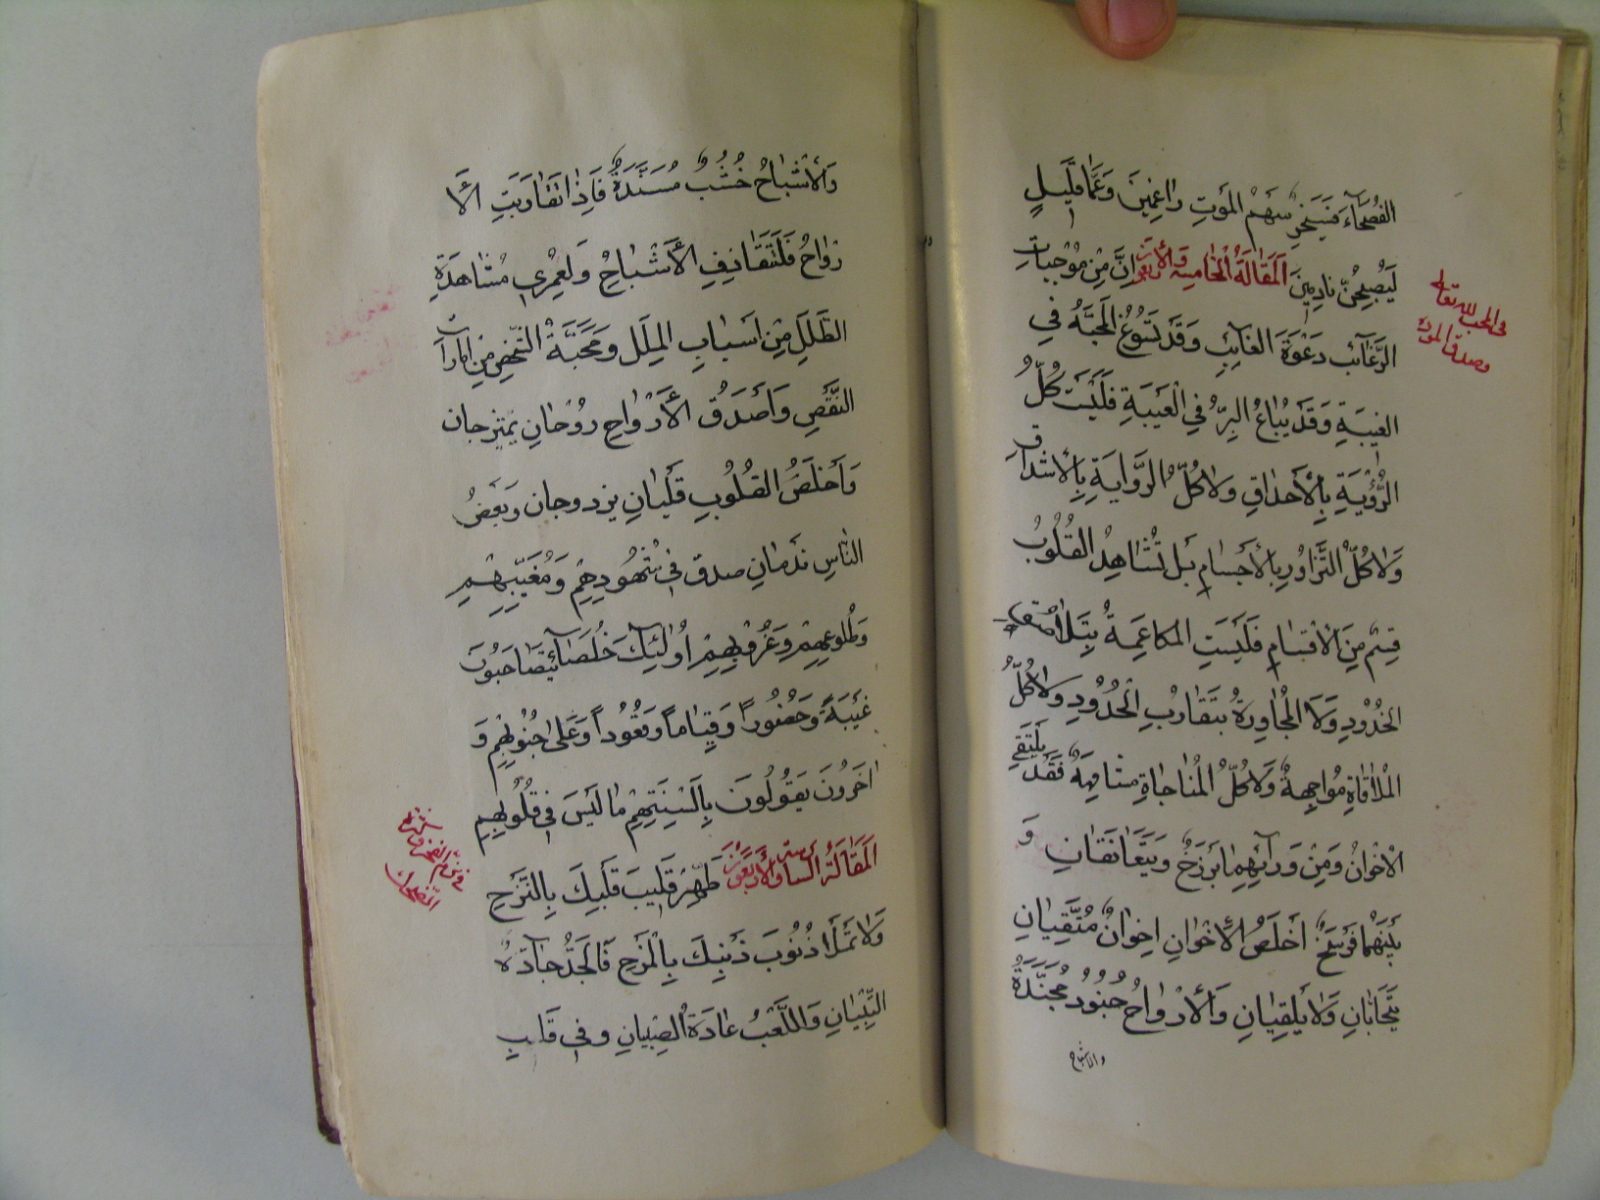 الفُصَحَآءَ فَسَيَخِرُ سَهْمُ المَوْتِ راغِمِينَ وَعَمَّا قَلِيلٍ
لَيُصْبِحُنَّ نادِمِينَ اَلمَقالَةُ الْخامِسة وَالأربَعُونَ اِنَّ مِنْ مُوْجِباتِ
فى الحب لله تعالى
وصدق المودة
الرَّغآئبِ دَعْوَةَ الغآئِبِ وَقَدْ تَسُوغُ المَحَبَّةُ فِي
الغيبَةِ وَقَدْ يُباعُ البِرُّ فِي الْعَيبَةِ فَلَيْسَتْ كُلُّ
الرُّؤْيَةِ بِالأَحداقِ وَلا كُلُّ الرِّوايَةِ بِالأَشداقِ
وَلا كُلُّ التَّزاوُرِ بِالأَجسامِ بَل تُشاهِدُ القُلُوبُ
قِسْمٌ مِنَ الأقسامِ فَلَيْسَتِ المُكاعَمةُ بِتَلاصُقِ
الخُدُودِ وَلا المُجاوِرةُ بتَقارُبِ الْحُدُودِ وَلا كُلُّ
المُلاقاةِ مُواجِهةٌ وَلا كُلُّ المُناجاةِ مشافهةٌ فَقَدْ يَلتَقي
الأخوانُ وَمِنْ وَرآئِهِما بَرْزَخٌ وَيَتَعانَقانِ وَ
بَيْنَهُما فَرْسَخٌ اَخلَصُ الأخوانِ اِخوانٌ مُتَّقِيانِ
يَتَحابّانِ وَلا يَلقِيانِ وَالأَرْواحُ جُنُودٌ مُجَنَّدَةٌ
والاشباح
وَالأَشْباحُ خُشُبٌ مُسَنَّدَةٌ فَاِذا تَقارَبَتِ الأَ
رْواحُ فَلتَتَقاذفِ الأَشْباحُ وَلَعَمْرِي مُشاهَدَةِ
الطَّلَلِ مِنْ اَسبابِ المِلَلِ وَمَحَبَّةُ الشَّخصِ مِنْ اَماراتِ
النَّقصِ وَاَصدَقُ الأَرْواحِ رُوْحانِ يمتزجان
وَاَخلَصُ القُلُوبِ قَلْبانِ يزدوجان وَبَعضُ
النّاسِ نَدْمانِ صدق فِي شُهُودِهِمْ وَمُغَيَّبِهِمْ
وَطُلوعِهِمْ وَغُرُوبِهِمْ اُولٰئِكَ خُلَصآءُ يَتَصاحَبُونَ
غَيْبَةً وَحُضُوراً وَقِياماً وَقُعُوداً وَعَلىٰ جُنُوبِهِمْ وَ
اٰخَرُونَ يَقُولُونَ بِاَلسِنَتِهِمْ ما لَيْسَ فِي قُلُوبِهِم
اَلمَقالَةُ السادِسَة والأَربَعُونَ طَهِّرْ قَلِيبَ قَلبِكَ بِالنَّزحِ
وَلا تَملَأ ذُنُوبَ ذَنبِكَ بِالمَزحِ فَالجَدُّ جآدّةُ
النَّبِيّانِ وَاللَّعْبُ عادَةُ الصِبيانِ وفي قَلبِ